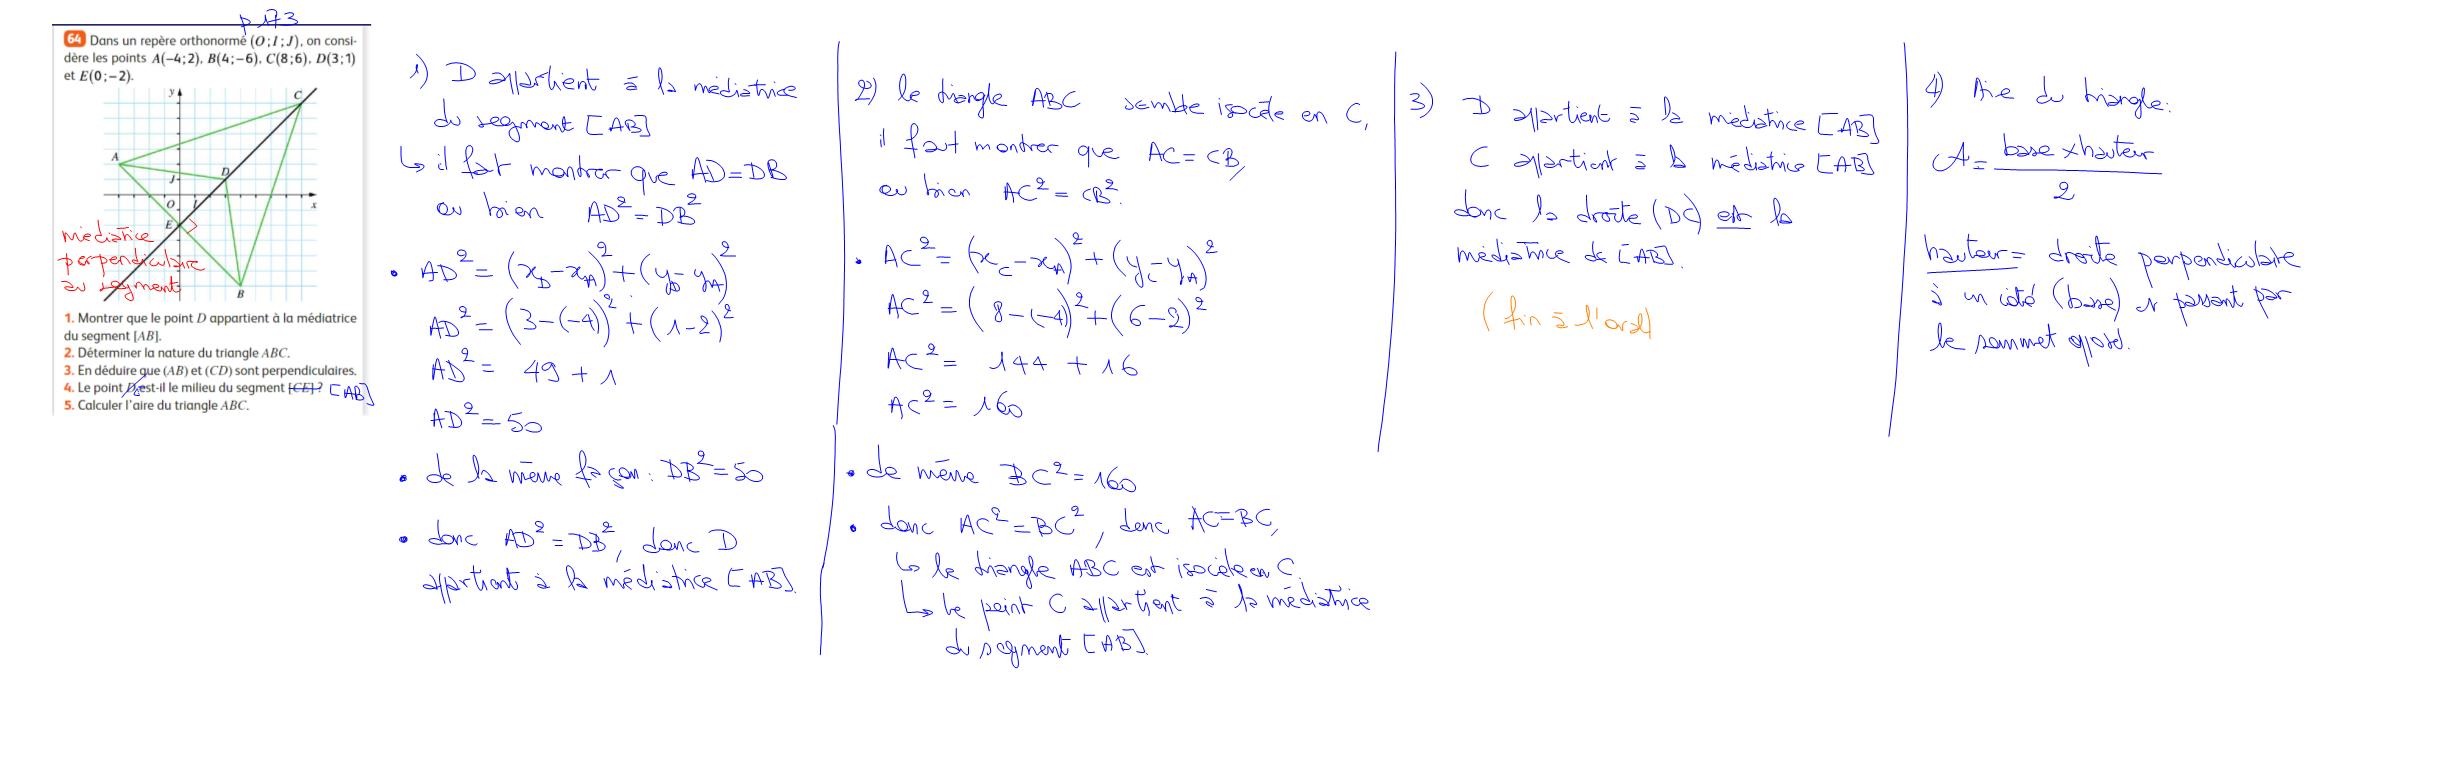 p 173
64 Dans un repère orthonormé (O ; I ; J), on consi-
dère les points A(–4 ; 2), B(4 ; –6), C(8 ; 6), D(3 ; 1)
et E(0 ; –2).
y
C
A
D
J
O
I
x
E
B
médiatrice
perpendiculaire
au segment
1. Montrer que le point D appartient à la médiatrice
du segment [AB].
2. Déterminer la nature du triangle ABC.
3. En déduire que (AB) et (CD) sont perpendiculaires.
4. Le point est-il le milieu du segment [CE] ? [AB]
5. Calculer l'aire du triangle ABC.
1) D appartient à la médiatrice
du segment [AB]
↳ il faut montrer que AD = DB
ou bien AD² = DB²
• AD² = (x_D - x_A)² + (y_D - y_A)²
AD² = (3 - (-4))² + (1 - 2)²
AD² = 49 + 1
AD² = 50
• de la même façon : DB² = 50
• donc AD² = DB², donc D
appartient à la médiatrice [AB].
2) le triangle ABC semble isocèle en C,
il faut montrer que AC = CB,
ou bien AC² = CB².
• AC² = (x_C - x_A)² + (y_C - y_A)²
AC² = (8 - (-4))² + (6 - 2)²
AC² = 144 + 16
AC² = 160
• de même BC² = 160
• donc AC² = BC², donc AC = BC,
↳ le triangle ABC est isocèle en C.
↳ le point C appartient à la médiatrice
du segment [AB].
3) D appartient à la médiatrice [AB]
C appartient à la médiatrice [AB]
donc la droite (DC) est la
médiatrice de [AB].
(fin à l'oral)
4) Aire du triangle :
A = base x hauteur
2
hauteur = droite perpendiculaire
à un côté (base) et passant par
le sommet opposé.